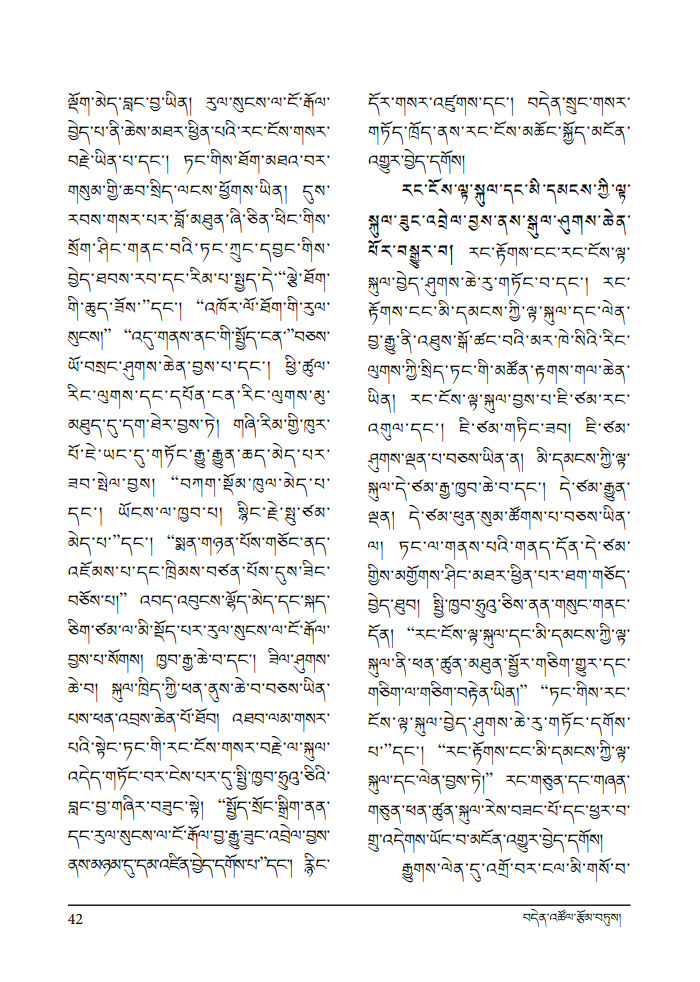 ལྡོག་མེད་བླང་བྱ་ཡིན། རུལ་སུངས་ལ་ངོ་རྒོལ་
བྱེད་པ་ནི་ཆེས་མཐར་ཕྱིན་པའི་རང་ངོས་གསར་
བརྗེ་ཡིན་པ་དང་། ཏང་གིས་ཐོག་མཐའ་བར་
གསུམ་གྱི་ཆབ་སྲིད་ལངས་ཕྱོགས་ཡིན། དུས་
རབས་གསར་པར་བློ་མཐུན་ཞི་ཅིན་ཕིང་གིས་
སྲོག་ཤིང་གནང་བའི་ཏང་ཀྲུང་དབྱང་གིས་
བྱེད་ཐབས་རབ་དང་རིམ་པ་སྤྱད་དེ་“ལྕེ་ཐོག་
གི་ཆུད་ཟོས་”དང་། “འཁོར་ལོ་ཐོག་གི་རུལ་
སུངས།” “འདུ་གནས་ནང་གི་སྤྱོད་ངན་”བཅས་
ཡོ་བསྲང་ཤུགས་ཆེན་བྱས་པ་དང་། ཕྱི་ཚུལ་
རིང་ལུགས་དང་དཔོན་ངན་རིང་ལུགས་མུ་
མཐུད་དུ་དག་ཐེར་བྱས་ཏེ། གཞི་རིམ་གྱི་ཁུར་
པོ་ཇེ་ཡང་དུ་གཏོང་རྒྱུ་རྒྱུན་ཆད་མེད་པར་
ཟབ་སྤེལ་བྱས། “བཀག་སྡོམ་ཁུལ་མེད་པ་
དང་། ཡོངས་ལ་ཁྱབ་པ། སྙིང་རྗེ་སྤུ་ཙམ་
མེད་པ་”དང་། “སྨན་གཉན་པོས་གཅོང་ནད་
འཇོམས་པ་དང་ཁྲིམས་བཙན་པོས་དུས་ཟིང་
བཅོས་པ།” འབད་འབུངས་ལྷོད་མེད་དང་སྐད་
ཅིག་ཙམ་ལ་མི་སྡོད་པར་རུལ་སུངས་ལ་ངོ་རྒོལ་
བྱས་པ་སོགས། ཁྱབ་རྒྱ་ཆེ་བ་དང་། ཟིལ་ཤུགས་
ཆེ་བ། སྐུལ་ཁྲིད་ཀྱི་ཕན་ནུས་ཆེ་བ་བཅས་ཡིན་
པས་ཕན་འབྲས་ཆེན་པོ་ཐོབ། འཐབ་ལམ་གསར་
པའི་སྟེང་ཏང་གི་རང་ངོས་གསར་བརྗེ་ལ་སྐུལ་
འདེད་གཏོང་བར་ངེས་པར་དུ་སྤྱི་ཁྱབ་ཧྲུའུ་ཅིའི་
བླང་བྱ་གཞིར་བཟུང་སྟེ། “སྤྱོད་སྲོང་སྒྲིག་ནན་
དང་རུལ་སུངས་ལ་ངོ་རྒོལ་བྱ་རྒྱུ་ཟུང་འབྲེལ་བྱས་
ནས་མཉམ་དུ་དམ་འཛིན་བྱེད་དགོས་པ་”དང་། རྙིང་
དོར་གསར་འཛུགས་དང་། བདེན་སྲུང་གསར་
གཏོད་ཁྲོད་ནས་རང་ངོས་མཆོང་སྐྱོད་མངོན་
འགྱུར་བྱེད་དགོས།
རང་ངོས་ལྟ་སྐུལ་དང་མི་དམངས་ཀྱི་ལྟ་
སྐུལ་ཟུང་འབྲེལ་བྱས་ནས་སྒུལ་ཤུགས་ཆེན་
པོར་བསྒྱུར་བ། རང་རྟོགས་ངང་རང་ངོས་ལྟ་
སྐུལ་བྱེད་ཤུགས་ཆེ་རུ་གཏོང་བ་དང་། རང་
རྟོགས་ངང་མི་དམངས་ཀྱི་ལྟ་སྐུལ་དང་ལེན་
བྱ་རྒྱུ་ནི་འཐུས་སྒོ་ཚང་བའི་མར་ཁེ་སིའི་རིང་
ལུགས་ཀྱི་སྲིད་ཏང་གི་མཚོན་རྟགས་གལ་ཆེན་
ཡིན། རང་ངོས་ལྟ་སྐུལ་བྱས་པ་ཇི་ཙམ་རང་
འགུལ་དང་། ཇི་ཙམ་གཏིང་ཟབ། ཇི་ཙམ་
ཤུགས་ལྡན་པ་བཅས་ཡིན་ན། མི་དམངས་ཀྱི་ལྟ་
སྐུལ་དེ་ཙམ་རྒྱ་ཁྱབ་ཆེ་བ་དང་། དེ་ཙམ་རྒྱུན་
ལྡན། དེ་ཙམ་ཕུན་སུམ་ཚོགས་པ་བཅས་ཡིན་
ལ། ཏང་ལ་གནས་པའི་གནད་དོན་དེ་ཙམ་
གྱིས་མགྱོགས་ཤིང་མཐར་ཕྱིན་པར་ཐག་གཅོད་
བྱེད་ཐུབ། སྤྱི་ཁྱབ་ཧྲུའུ་ཅིས་ནན་གསུང་གནང་
དོན། “རང་ངོས་ལྟ་སྐུལ་དང་མི་དམངས་ཀྱི་ལྟ་
སྐུལ་ནི་ཕན་ཚུན་མཐུན་སྦྱོར་གཅིག་གྱུར་དང་
གཅིག་ལ་གཅིག་བརྟེན་ཡིན།” “ཏང་གིས་རང་
ངོས་ལྟ་སྐུལ་བྱེད་ཤུགས་ཆེ་རུ་གཏོང་དགོས་
པ་”དང་། “རང་རྟོགས་ངང་མི་དམངས་ཀྱི་ལྟ་
སྐུལ་དང་ལེན་བྱས་ཏེ།” རང་གཅུན་དང་གཞན་
གཅུན་ཕན་ཚུན་སྐུལ་རེས་བཟང་པོ་དང་ཕྱར་བ་
གྲུ་འདེགས་ཡོང་བ་མངོན་འགྱུར་བྱེད་དགོས།
རྒྱུགས་ལེན་དུ་འགྲོ་བར་ངལ་མི་གསོ་བ་
42
བདེན་འཚོལ་རྩོམ་བཏུས།